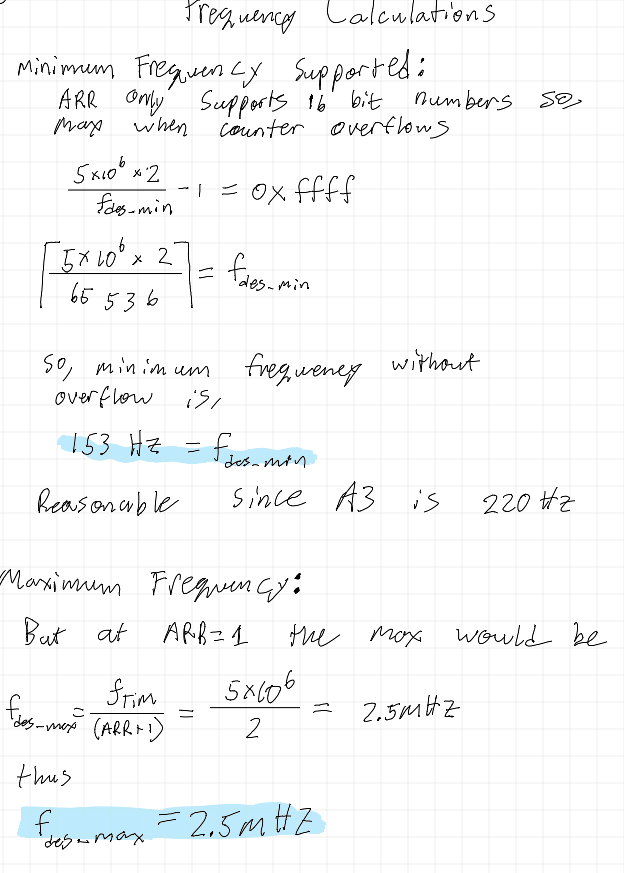 Frequency Calculations
Minimum Frequency Supported:
ARR only supports 16 bit numbers so,
max when counter overflows
5x10^6 x 2 / f_des-min - 1 = 0x ffff
⌈5x10^6 x 2 / 65 536⌉ = f_des-min
So, minimum frequency without
overflow is,
153 Hz = f_des-min
Reasonable since A3 is 220 Hz
Maximum Frequency:
But at ARR=1 the max would be
f_des-max = f_TIM / (ARR+1) = 5x10^6 / 2 = 2.5MHz
thus
f_des-max = 2.5MHz